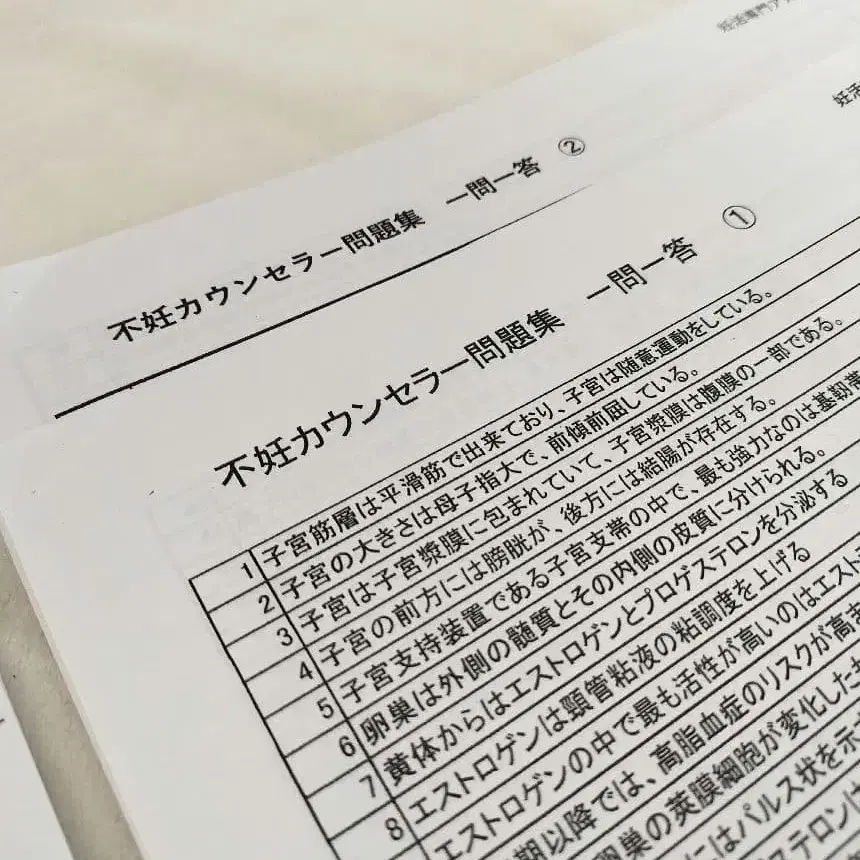 妊活専門
妊活
不妊カウンセラー問題集 一問一答 ②
不妊カウンセラー問題集 一問一答 ①
1 子宮筋層は平滑筋で出来ており、子宮は随意運動をしている。
2 子宮の大きさは母子指大で、前傾前屈している。
3 子宮は子宮漿膜に包まれていて、子宮漿膜は腹膜の一部である。
4 子宮の前方には膀胱が、後方には結腸が存在する。
5 子宮支持装置である子宮支帯の中で、最も強力なのは基靭帯
6 卵巣は外側の髄質とその内側の皮質に分けられる。
7 黄体からはエストロゲンとプロゲステロンを分泌する
8 エストロゲンは頸管粘液の粘調度を上げる
エストロゲンの中で最も活性が高いのはエスト
期以降では、高脂血症のリスクが高ま
卵巣の莢膜細胞が変化した
にはパルス状を示
ステロンは